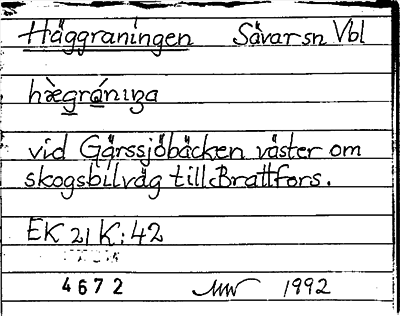 Häggraningen Sävar sn Vbl
hæ̀grániŋa
vid Gärssjöbäcken väster om
skogsbilväg till Brattfors.
EK 21 K: 42
4672 1992